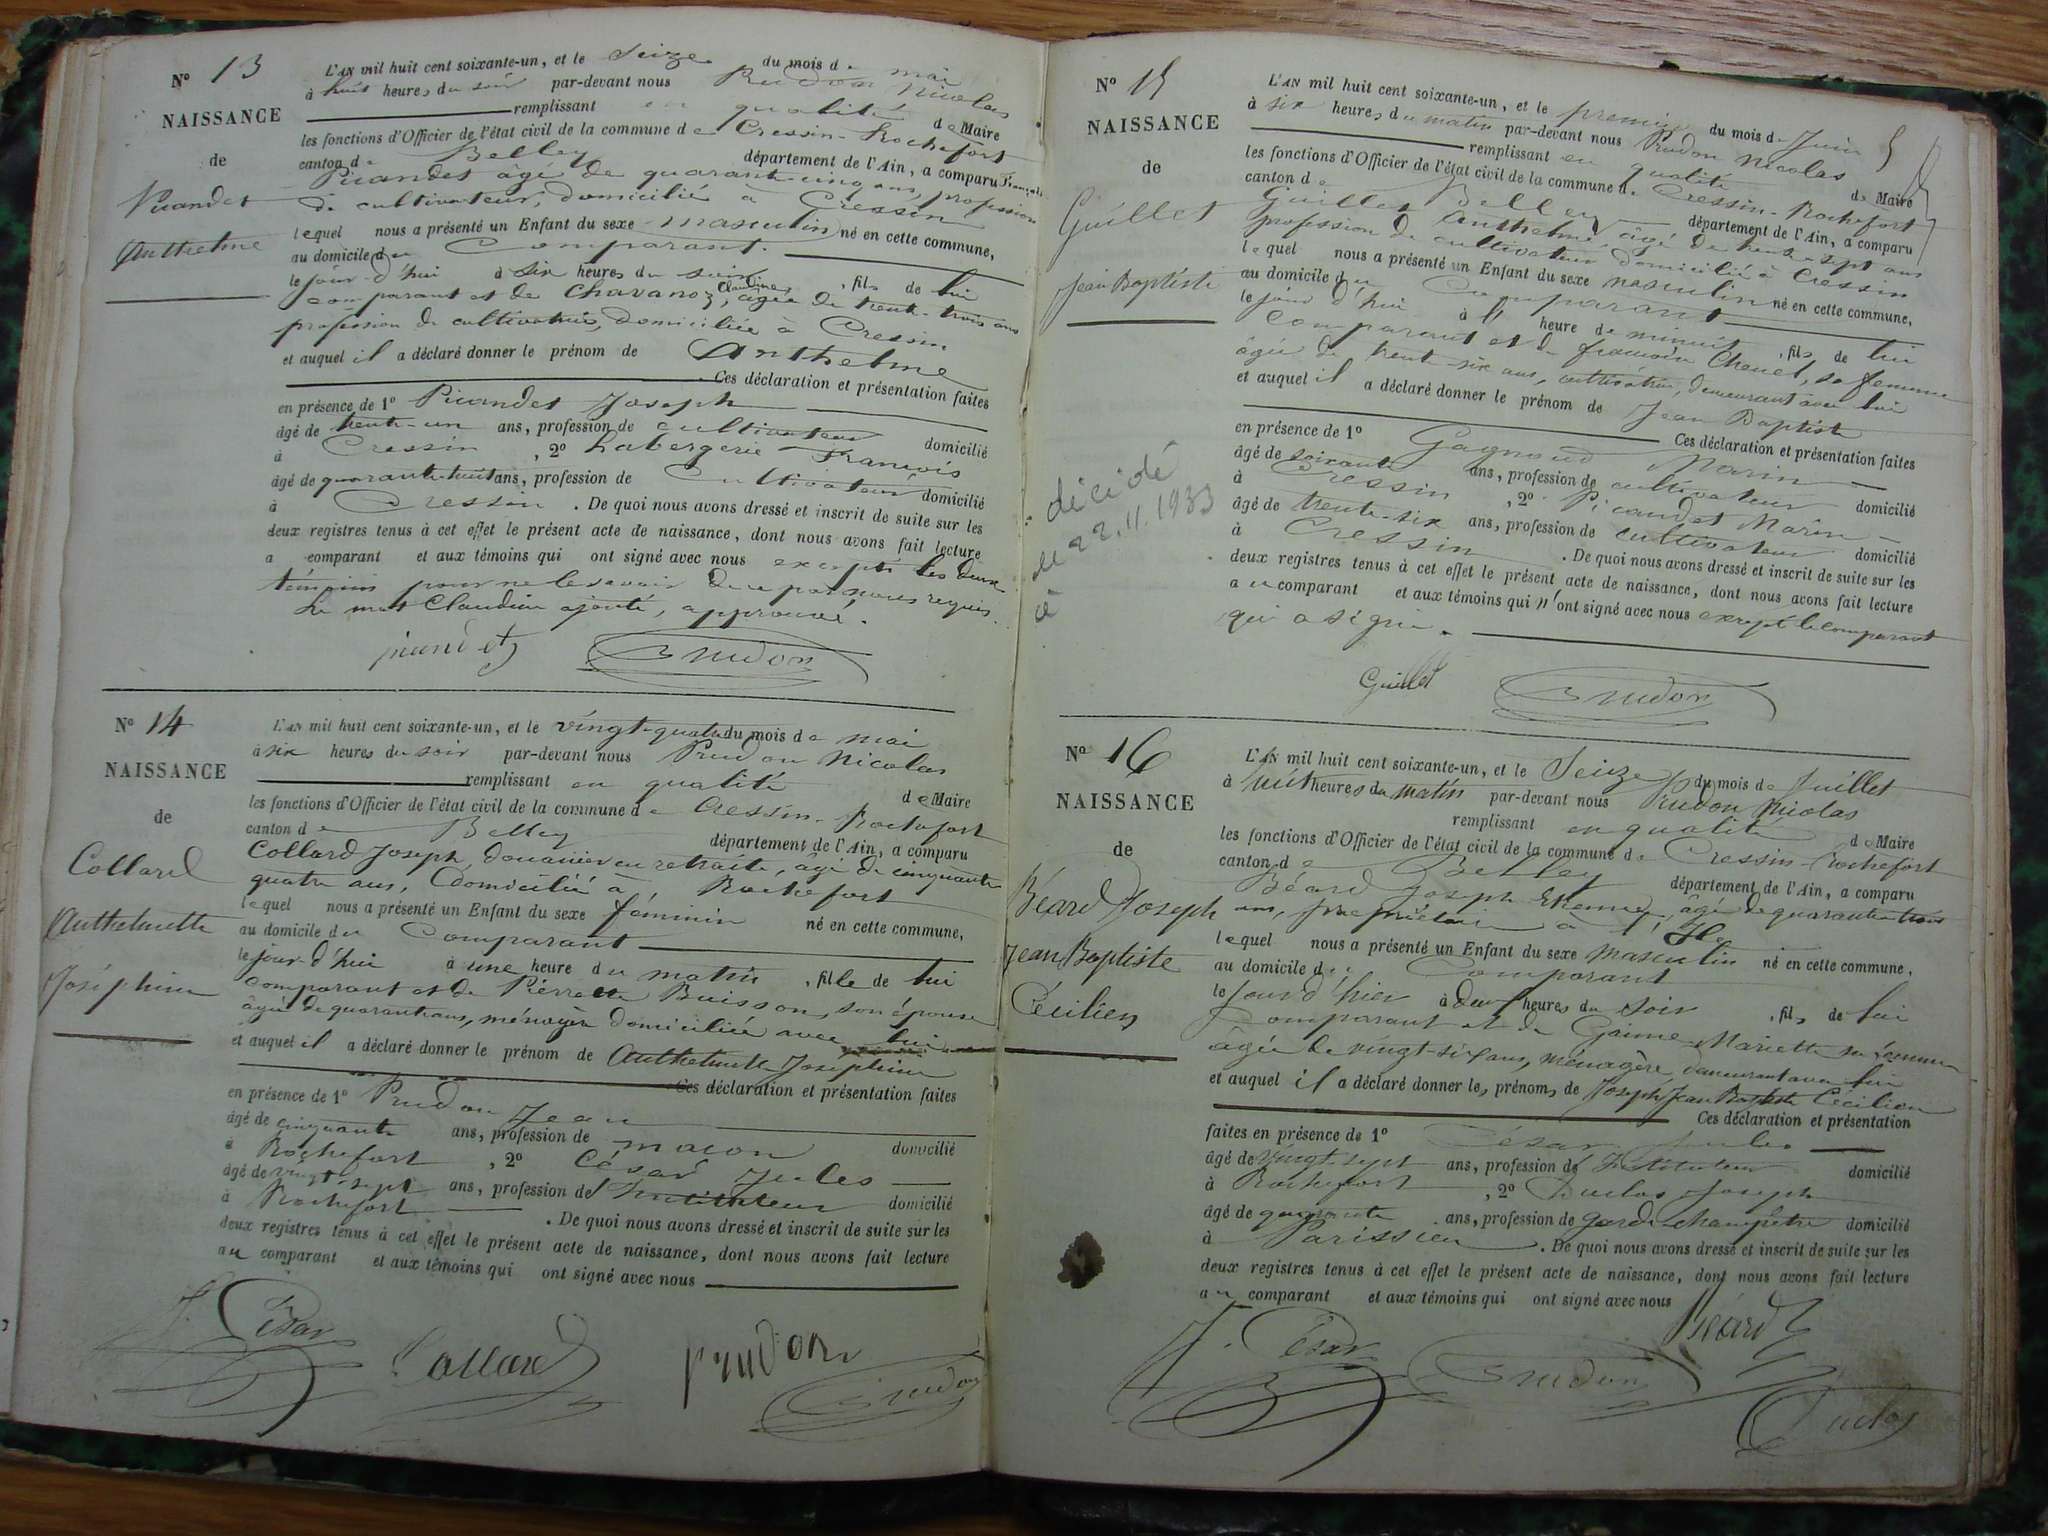 N° 13
NAISSANCE
de
Picandet
Anthelme
L'AN mil huit cent soixante-un, et le Seize du mois de mai
à huit heures du soir par-devant nous Prudon Nicolas
remplissant en qualité de Maire
les fonctions d'Officier de l'état civil de la commune de Cressin-Rochefort
canton de Belley département de l'Ain, a comparu François
Picandet âgé de quarante-cinq ans, profession
de cultivateur, domicilié à Cressin
lequel nous a présenté un Enfant du sexe masculin né en cette commune,
au domicile du Comparant
le jour d'hui à six heures du soir, fils de lui
comparant et de Chavanoz, Claudine, âgée de trente-trois ans
profession de cultivatrice, domiciliée à Cressin
et auquel il a déclaré donner le prénom de Anthelme
Ces déclaration et présentation faites
en présence de 1° Picandet Joseph
âgé de trente-un ans, profession de cultivateur domicilié
à Cressin, 2° Labergerie François
âgé de quarante-huit ans, profession de Cultivateur domicilié
à Cressin. De quoi nous avons dressé et inscrit de suite sur les
deux registres tenus à cet effet le présent acte de naissance, dont nous avons fait lecture
a comparant et aux témoins qui ont signé avec nous excepté les deux
témoins pour ne le savoir de ce par nous requis.
Le mot Claudine ajouté, approuvé.
picandet Prudon
N° 14
NAISSANCE
de
Collard
Anthelmette
Joséphine
L'AN mil huit cent soixante-un, et le vingt-quatre du mois de mai
à six heures du soir par-devant nous Prudon Nicolas
remplissant en qualité de Maire
les fonctions d'Officier de l'état civil de la commune de Cressin-Rochefort
canton de Belley département de l'Ain, a comparu
Collard Joseph, douanier en retraite, âgé de cinquante
quatre ans, Domicilié à Rochefort
lequel nous a présenté un Enfant du sexe féminin né en cette commune,
au domicile du Comparant
le jour d'hui à une heure du matin, fille de lui
comparant et de Pierrette Buisson, son épouse
âgée de quarante ans, ménagère domiciliée avec lui
et auquel il a déclaré donner le prénom de Anthelmette Joséphine
Ces déclaration et présentation faites
en présence de 1° Prudon Jean
âgé de cinquante ans, profession de maçon domicilié
à Rochefort, 2° César Jules
âgé de vingt-sept ans, profession d'Instituteur domicilié
à Rochefort. De quoi nous avons dressé et inscrit de suite sur les
deux registres tenus à cet effet le présent acte de naissance, dont nous avons fait lecture
au comparant et aux témoins qui ont signé avec nous
J. César Collard prudon Prudon
N° 15
NAISSANCE
de
Guillet
Jean Baptiste
décédé
le 22.11.1933
L'AN mil huit cent soixante-un, et le premier du mois de Juin
à six heures du matin par-devant nous Prudon Nicolas
remplissant en qualité de Maire
les fonctions d'Officier de l'état civil de la commune de Cressin-Rochefort
canton de Belley département de l'Ain, a comparu
Guillet Anthelme, âgé de trente-sept ans
profession de cultivateur domicilié à Cressin
lequel nous a présenté un Enfant du sexe masculin né en cette commune,
au domicile du Comparant
le jour d'hui à l' heure de minuit, fils de lui
comparant et de françoise Chenet, sa femme
âgée de trente-six ans, cultivatrice, demeurant avec lui
et auquel il a déclaré donner le prénom de Jean Baptiste
Ces déclaration et présentation faites
en présence de 1° Gagnoud Marin
âgé de soixante ans, profession de cultivateur domicilié
à Cressin, 2° Picandet Marin
âgé de trente-six ans, profession de cultivateur domicilié
à Cressin. De quoi nous avons dressé et inscrit de suite sur les
deux registres tenus à cet effet le présent acte de naissance, dont nous avons fait lecture
au comparant et aux témoins qui n'ont signé avec nous excepté le comparant
qui a signé.
Guillet Prudon
N° 16
NAISSANCE
de
Béard Joseph
Jean Baptiste
Cécilien
L'AN mil huit cent soixante-un, et le Seize du mois de Juillet
à huit heures du matin par-devant nous Prudon Nicolas
remplissant en qualité de Maire
les fonctions d'Officier de l'état civil de la commune de Cressin-Rochefort
canton de Belley département de l'Ain, a comparu
Béard Joseph Etienne, âgé de quarante-trois
ans, propriétaire à l'Ile
lequel nous a présenté un Enfant du sexe masculin né en cette commune,
au domicile du Comparant
le jour d'hier à deux heures du soir, fils de lui
Comparant et de Gaime Mariette sa femme
âgée de vingt-six ans, ménagère demeurant avec lui
et auquel il a déclaré donner les prénoms de Joseph Jean Baptiste Cécilien
Ces déclaration et présentation
faites en présence de 1° César Jules
âgé de vingt-sept ans, profession d'Instituteur domicilié
à Rochefort, 2° Duclos Joseph
âgé de quarante ans, profession de garde champêtre domicilié
à Parissieu. De quoi nous avons dressé et inscrit de suite sur les
deux registres tenus à cet effet le présent acte de naissance, dont nous avons fait lecture
au comparant et aux témoins qui ont signé avec nous Béard
J. César Prudon Duclos